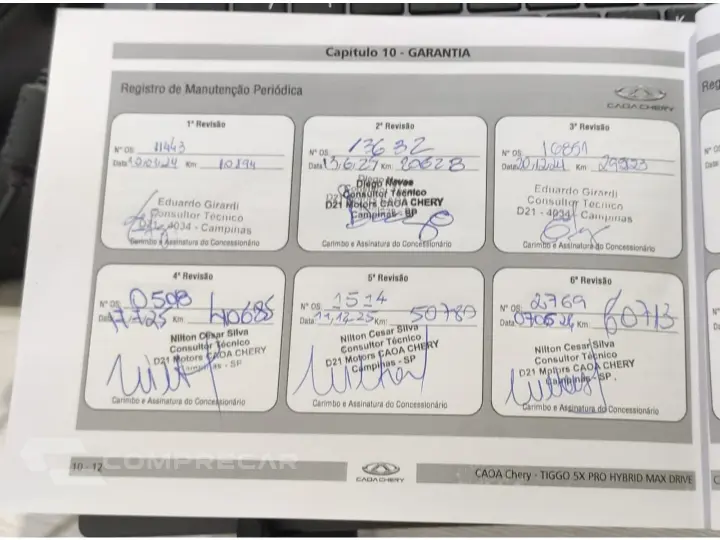 Capítulo 10 - GARANTIA
Registro de Manutenção Periódica
CAOA CHERY
1ª Revisão
Nº OS: 11443
Data 10/01/24 Km: 10194
Eduardo Girardi
Consultor Técnico
D21 - 4034 - Campinas
Carimbo e Assinatura do Concessionário
2ª Revisão
Nº OS: 13632
Data 13/6/24 Km: 20628
Diego Neves
Consultor Técnico
D21 Motors CAOA CHERY
Campinas - SP
Carimbo e Assinatura do Concessionário
3ª Revisão
Nº OS: 16851
Data 20/12/24 Km:
Eduardo Girardi
Consultor Técnico
D21 - 4034 - Campinas
Carimbo e Assinatura do Concessionário
4ª Revisão
Nº OS: 0508
Data Km: 40685
Nilton Cesar Silva
Consultor Técnico
D21 Motors CAOA CHERY
Campinas - SP
Carimbo e Assinatura do Concessionário
5ª Revisão
Nº OS: 1514
Data 11/12/25 Km: 50780
Nilton Cesar Silva
Consultor Técnico
D21 Motors CAOA CHERY
Campinas - SP
Carimbo e Assinatura do Concessionário
6ª Revisão
Nº OS: 2769
Data Km: 60713
Nilton Cesar Silva
Consultor Técnico
D21 Motors CAOA CHERY
Campinas - SP
Carimbo e Assinatura do Concessionário
COMPRECAR
10 - 12
CAOA CHERY
CAOA Chery - TIGGO 5X PRO HYBRID MAX DRIVE